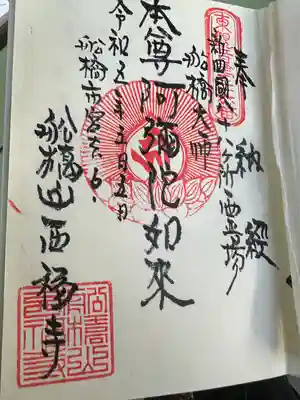 奉納
新四國八十八ヶ所霊場
船橋大師
本尊阿彌陀如來
令和五年五月五日
船橋市宮本6
船橋山西福寺